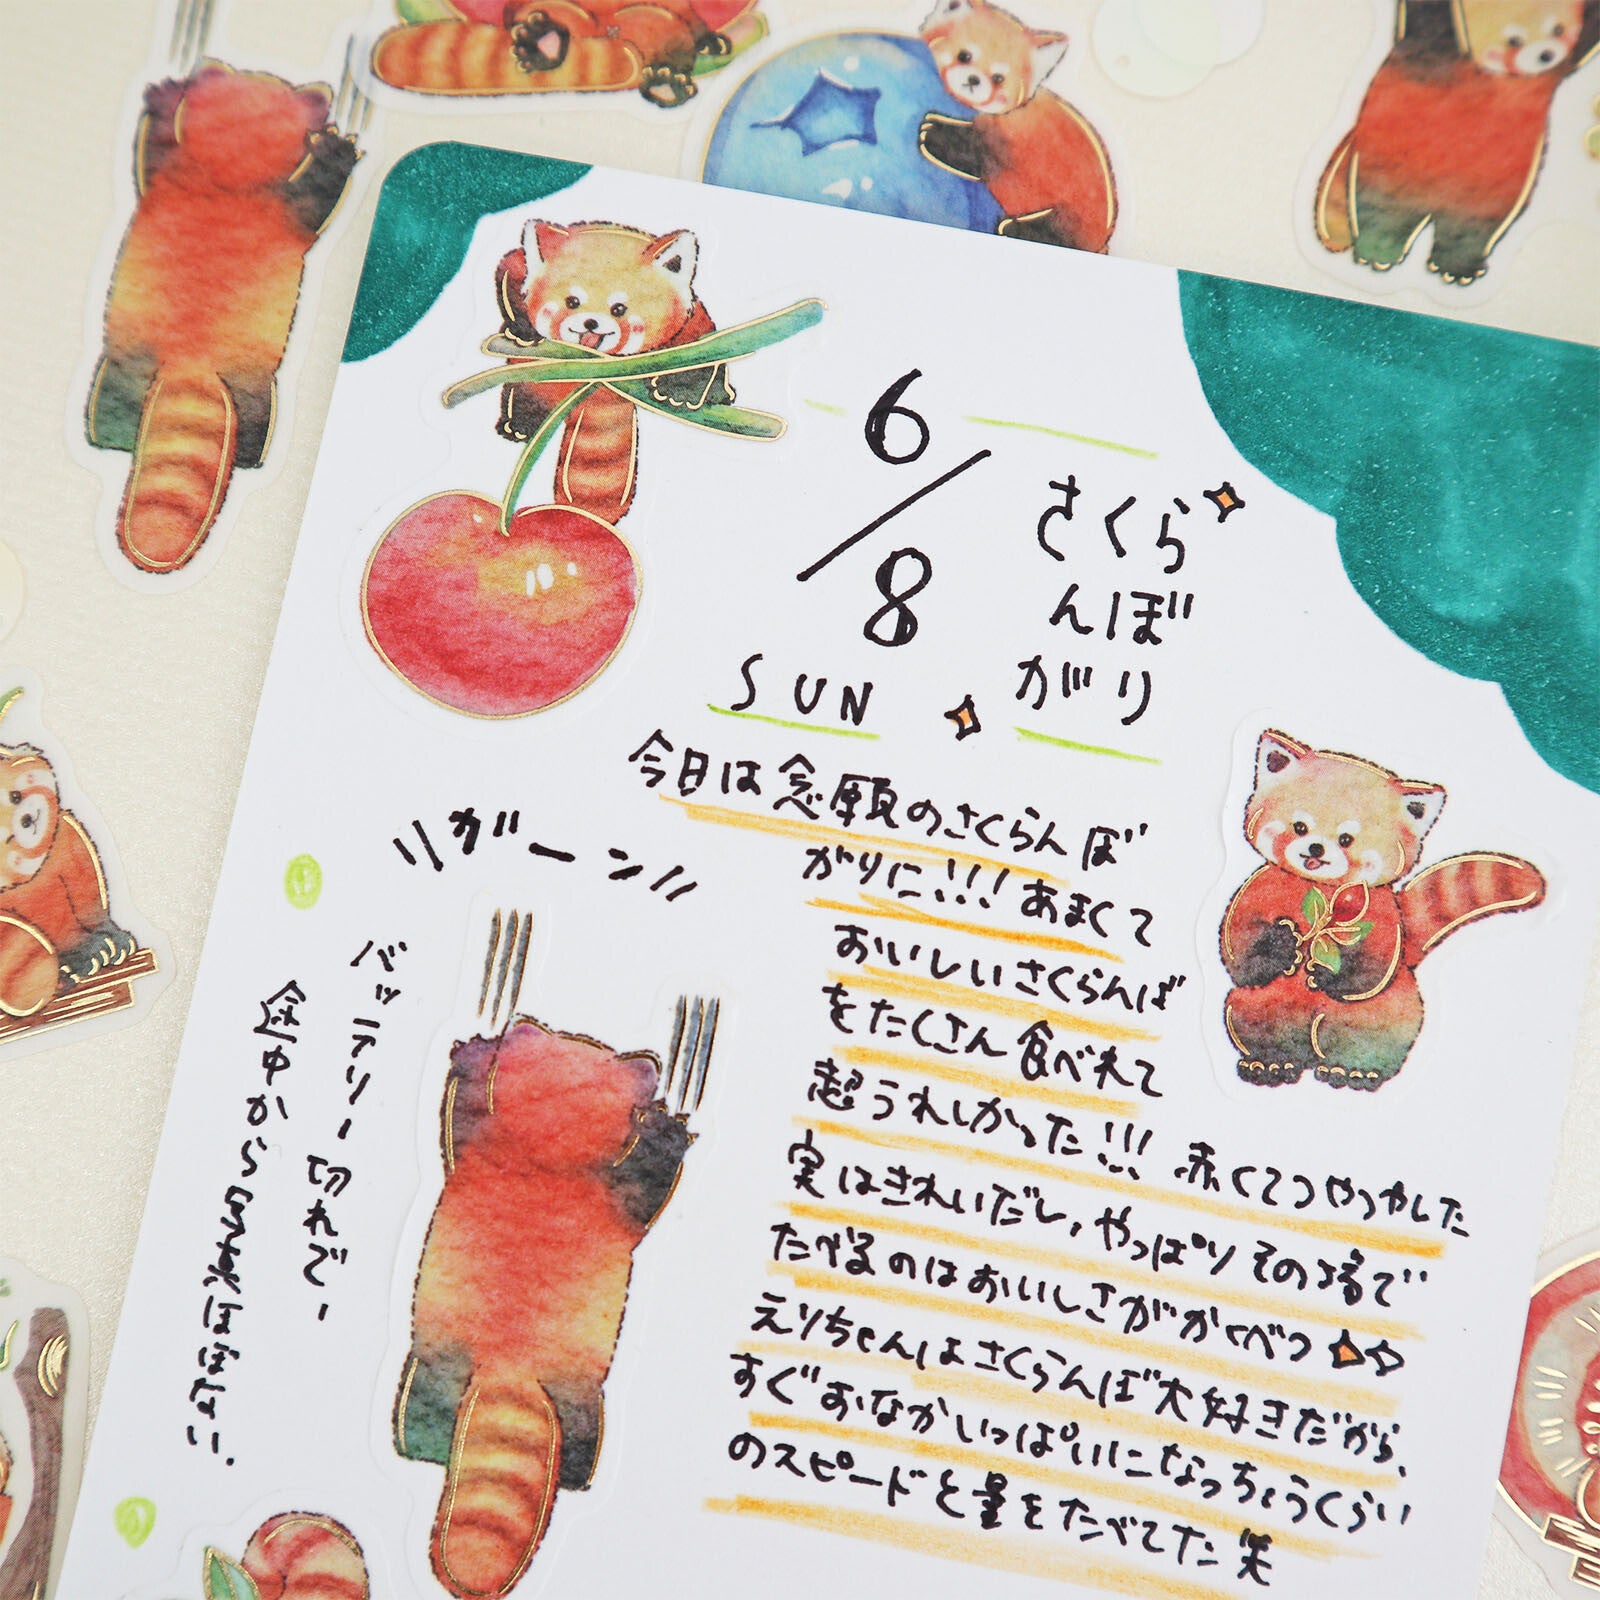 6/8
SUN
さくら
んぼ
がり
今日は念願のさくらんぼ
がりに!!!あまくて
おいしいさくらんぼ
をたくさん食べれて
超うれしかった!!!赤くてつやつやした
実はきれいだし、やっぱりその場で
たべるのはおいしさがかくべつ
えりちゃんはさくらんぼ大好きだから、
すぐおなかいっぱいになっちょうくらい
のスピードと量をたべてた笑
ガーン
バッテリー切れで、
途中から